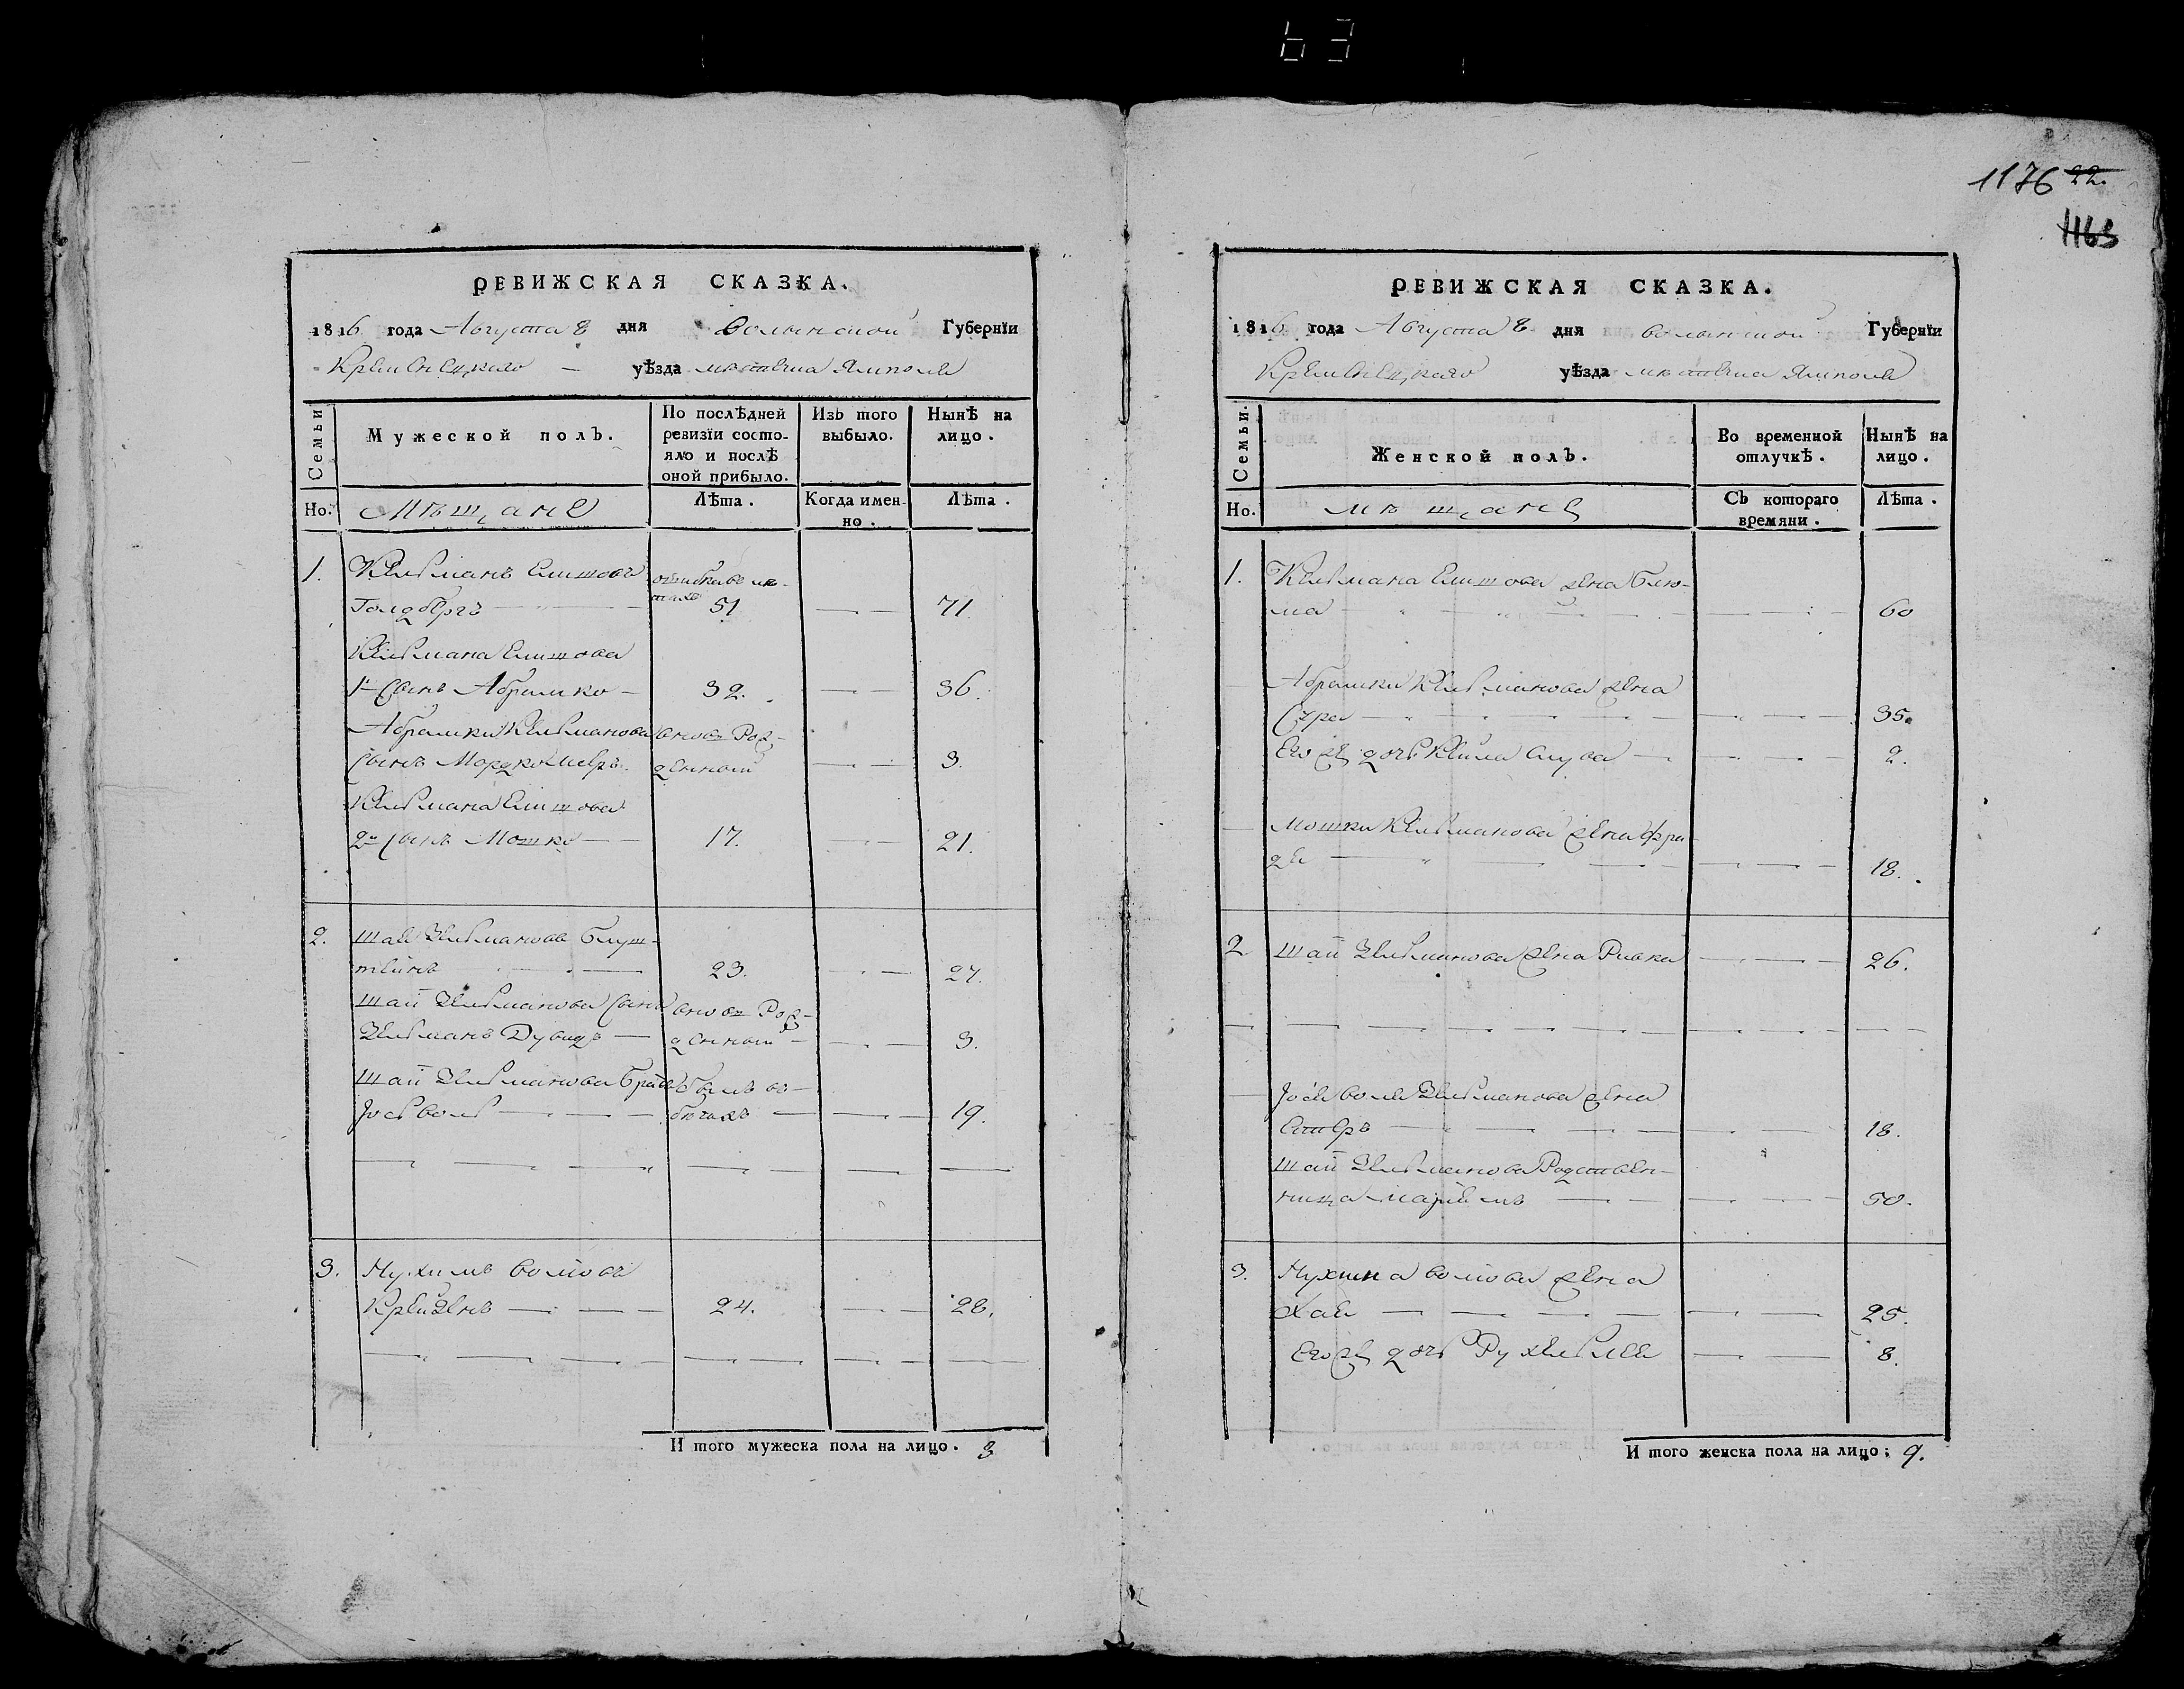 63
1176 22.
1163
РЕВИЖСКАЯ СКАЗКА.
1816 года Августа 8 дня Волынской Губернїи
Кременецкаго уѣзда местечка Ямполя
Семьи
Мужеской полъ.
По послѣдней ревизїи состо-
яло и послѣ оной прибыло.
Изъ того выбыло.
Нынѣ на лицо.
Но.
Мѣщане
Лѣта.
Когда имен-
но.
Лѣта.
1. Кельманъ Елишовъ ошибкавъ ле-
тахъ
Голдбергъ 51 71.
Кельмана Елишова
1й Сынъ Абрамко 32. 36.
Абрамки Кельманова вновь Рож-
Сынъ Мордко Мееръ денный 3.
Кельмана Елишова
2й Сынъ Мошко 17. 21.
2. Шая Зельмановъ Блуш-
тейнъ 23. 27.
Шаи Зельманова Сынъ вновь Рож-
Зельманъ Дувидъ денный 3.
Шаи Зельманова братъ былъ въ
Іось волъ бегахъ 19.
3. Нухимъ Волковъ
24. 28.
И того мужеска пола на лицо. 8
РЕВИЖСКАЯ СКАЗКА.
1816 года Августа 8 дня Волынской Губернїи
Кременецкаго уѣзда местечка Ямполя
Семьи.
Женской полъ.
Во временной отлучкѣ.
Нынѣ на лицо.
Но.
Мѣщане
Съ котораго времяни.
Лѣта.
1. Кельмана Елишова жена Блю-
ма 60
Абрамки Кельманова жена
Сура 35.
Его же дочь Кейла Слува 2.
Мошки Кельманова жена Фрей-
да 18.
2 Шаи Зельманова жена Ривка 26.
Іося вола Зельманова жена
Естеръ 18.
Шаи Зельманова Родствен-
ница Маріемъ 50.
3. Нухима Волкова жена
Хая 25.
Его же дочь Рухельлея 8.
И того женска пола на лицо: 9.